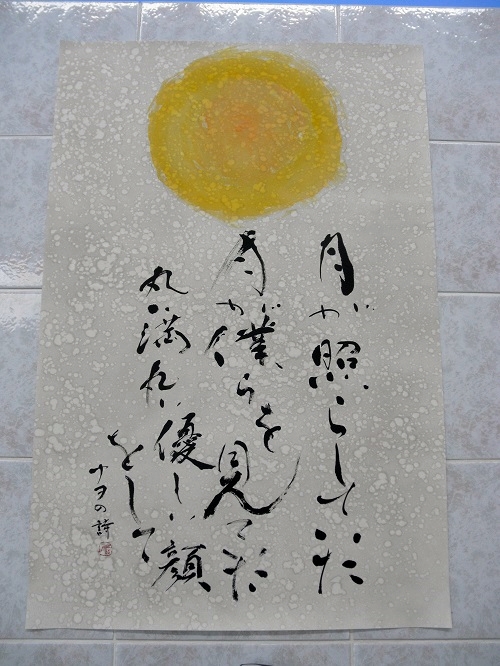 月が照らしていた
月が僕らを見てた
丸い満丸い優しい顔
をして
ナヲの詩